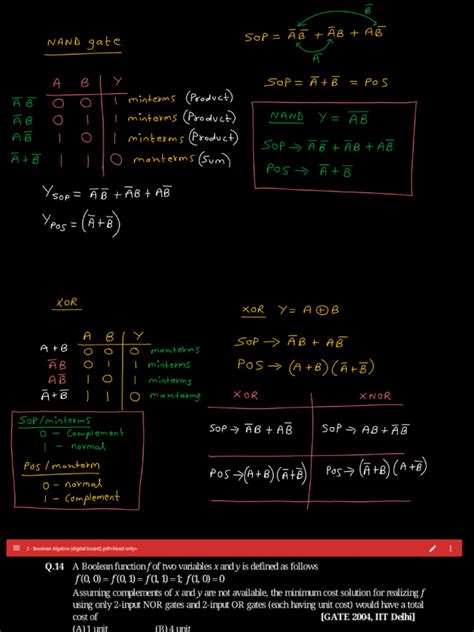 NAND gate
A B Y
A̅ B̅ 0 0 1 minterms (Product)
A̅B 0 1 1 minterms (Product)
AB̅ 1 0 1 minterms (Product)
A̅+B̅ 1 1 0 maxterms (Sum)
Y_SOP = A̅B̅ + A̅B + AB̅
Y_POS = (A̅+B̅)
B̅
SOP = A̅B̅ + A̅B + AB̅
A̅
SOP = A̅+B̅ = POS
NAND Y = A̅B̅
SOP → A̅B̅ + A̅B + AB̅
POS → A̅+B̅
XOR
A B Y
A+B 0 0 0 maxterms
A̅B 0 1 1 minterms
AB̅ 1 0 1 minterms
A̅+B̅ 1 1 0 maxterms
SOP/minterms
0 - Complement
1 - normal
POS / maxterm
0 - normal
1 - Complement
XOR Y = A ⊕ B
SOP → A̅B + AB̅
POS → (A+B)(A̅+B̅)
XOR XNOR
SOP → A̅B + AB̅ SOP → AB + A̅B̅
POS → (A+B)(A̅+B̅) POS → (A̅+B)(A+B̅)
2 - Boolean Algebra (digital board).pdf<Read-only>
Q.14 A Boolean function f of two variables x and y is defined as follows
f(0, 0) = f(0, 1) = f(1, 1) = 1; f(1, 0) = 0
Assuming complements of x and y are not available, the minimum cost solution for realizing f
using only 2-input NOR gates and 2-input OR gates (each having unit cost) would have a total
cost of [GATE 2004, IIT Delhi]
(A) 1 unit (B) 4 unit